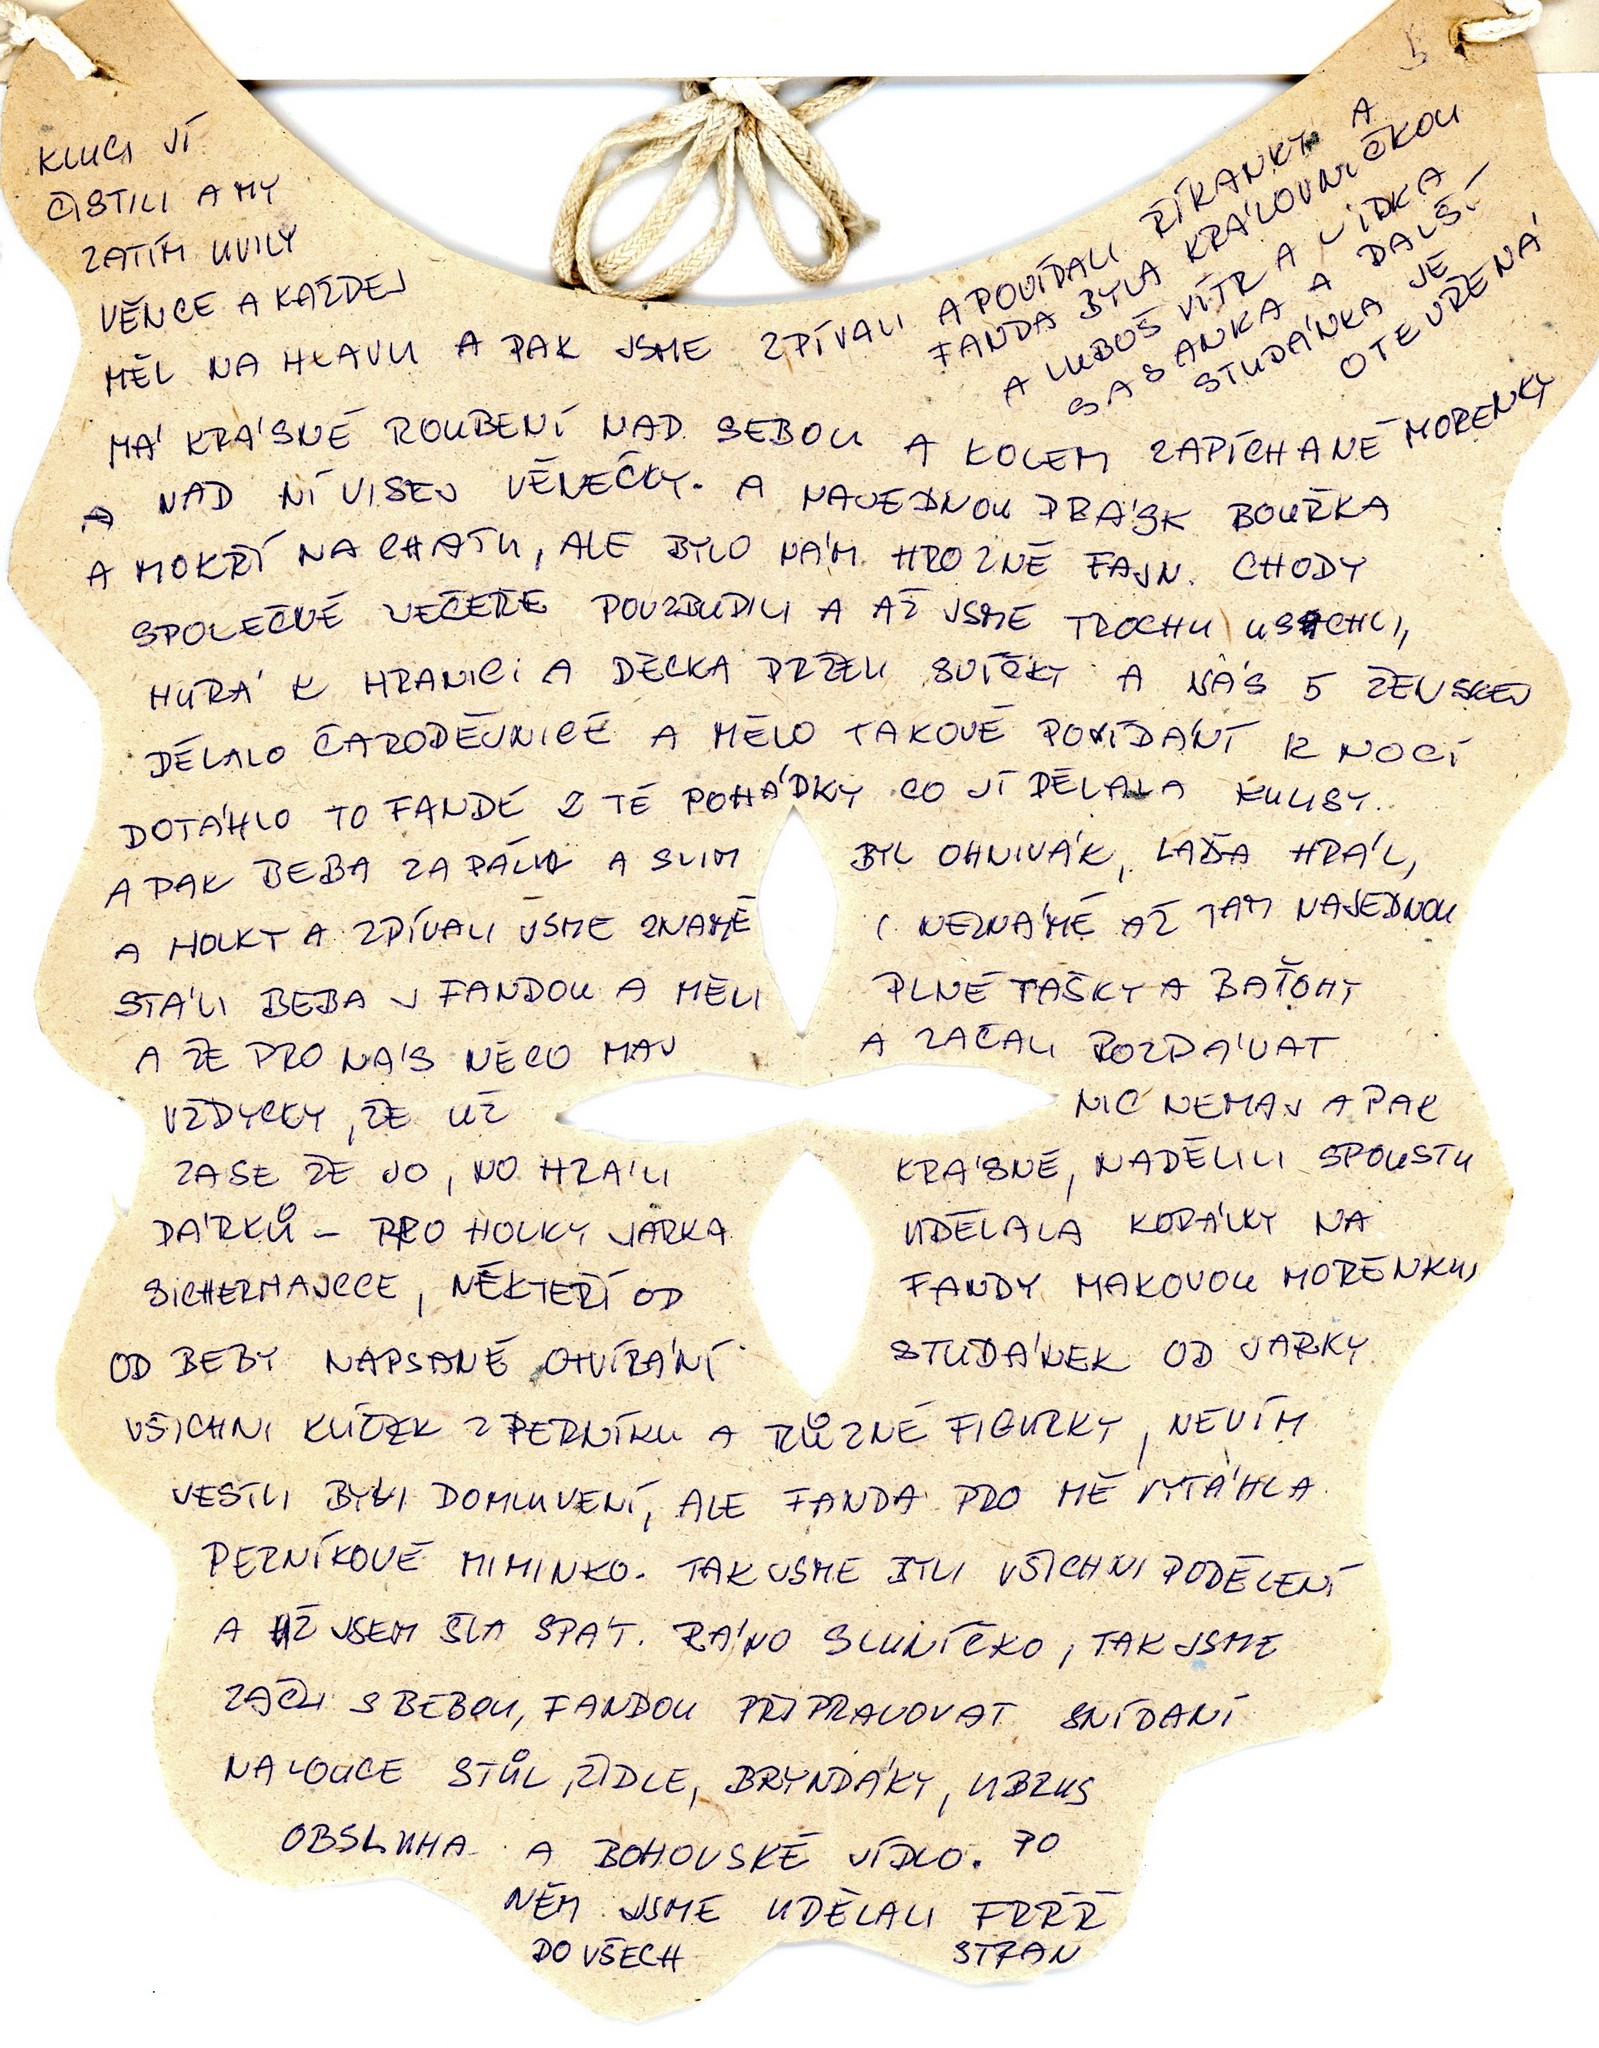 5
KLUCI JÍ
ČISTILI A MY
ZATÍM UVILY
VĚNCE A KAŽDEJ
MĚL NA HLAVU A PAK JSME ZPÍVALI A POVÍDALI ŘÍKANKY A
FANDA BYLA KRÁLOVNIČKOU
A LUBOŠ VÍTR A LÍDKA
SASANKA A DALŠÍ
STUDÁNKA JE
OTEVŘENÁ
MÁ KRÁSNÉ ROUBENÍ NAD SEBOU A KOLEM ZAPÍCHANÉ MORENKY
A NAD NÍ VISEJ VĚNEČKY. A NAJEDNOU PRÁSK BOUŘKA
A MOKŘÍ NA CHATU, ALE BYLO NÁM HROZNĚ FAJN. CHODY
SPOLEČNÉ VEČEŘE POVZBUDILI A AŽ JSME TROCHU USCHLI,
HURÁ K HRANICI A DĚCKA DRŽELI SVÍČKY A NÁS 5 ŽENSKEJ
DĚLALO ČARODĚJNICE A MĚLO TAKOVÉ POVÍDÁNÍ K NOCI
DOTÁHLO TO FANDĚ Z TÉ POHÁDKY CO JÍ DĚLALA KULISY.
A PAK BEBA ZAPÁLIL A SLIM BYL OHNIVÁK, LAĎA HRÁL,
A HOLKY A ZPÍVALI JSME ZNÁMÉ I NEZNÁMÉ AŽ TAM NAJEDNOU
STÁLI BEBA S FANDOU A MĚLI PLNÉ TAŠKY A BAŤOHY
A ŽE PRO NÁS NĚCO MAJ A ZAČALI ROZDÁVAT
VŽDYCKY, ŽE UŽ NIC NEMAJ A PAK
ZASE ŽE JO, NO HRÁLI KRÁSNĚ, NADĚLILI SPOUSTU
DÁRKŮ – PRO HOLKY JARKA UDĚLALA KORÁLKY NA
SICHERHAJCCE, NĚKTEŘÍ OD FANDY MAKOVOU MORENKU,
OD BEBY NAPSANÉ OTVÍRÁNÍ STUDÁNEK OD JARKY
VŠICHNI KLÍČEK Z PERNÍKU A RŮZNÉ FIGURKY, NEVÍM
JESTLI BYLI DOMLUVENÍ, ALE FANDA PRO MĚ VYTÁHLA
PERNÍKOVÉ MIMINKO. TAK JSME BYLI VŠICHNI PODĚLENÍ
A UŽ JSEM ŠLA SPÁT. RÁNO SLUNÍČKO, TAK JSME
ZAČLI S BEBOU, FANDOU PŘIPRAVOVAT SNÍDANÍ
NA LOUCE STŮL, ŽIDLE, BRYNDÁKY, UBRUS
OBSLUHA A BOHOVSKÉ JÍDLO. PO
NĚM JSME UDĚLALI FRRR
DO VŠECH STRAN